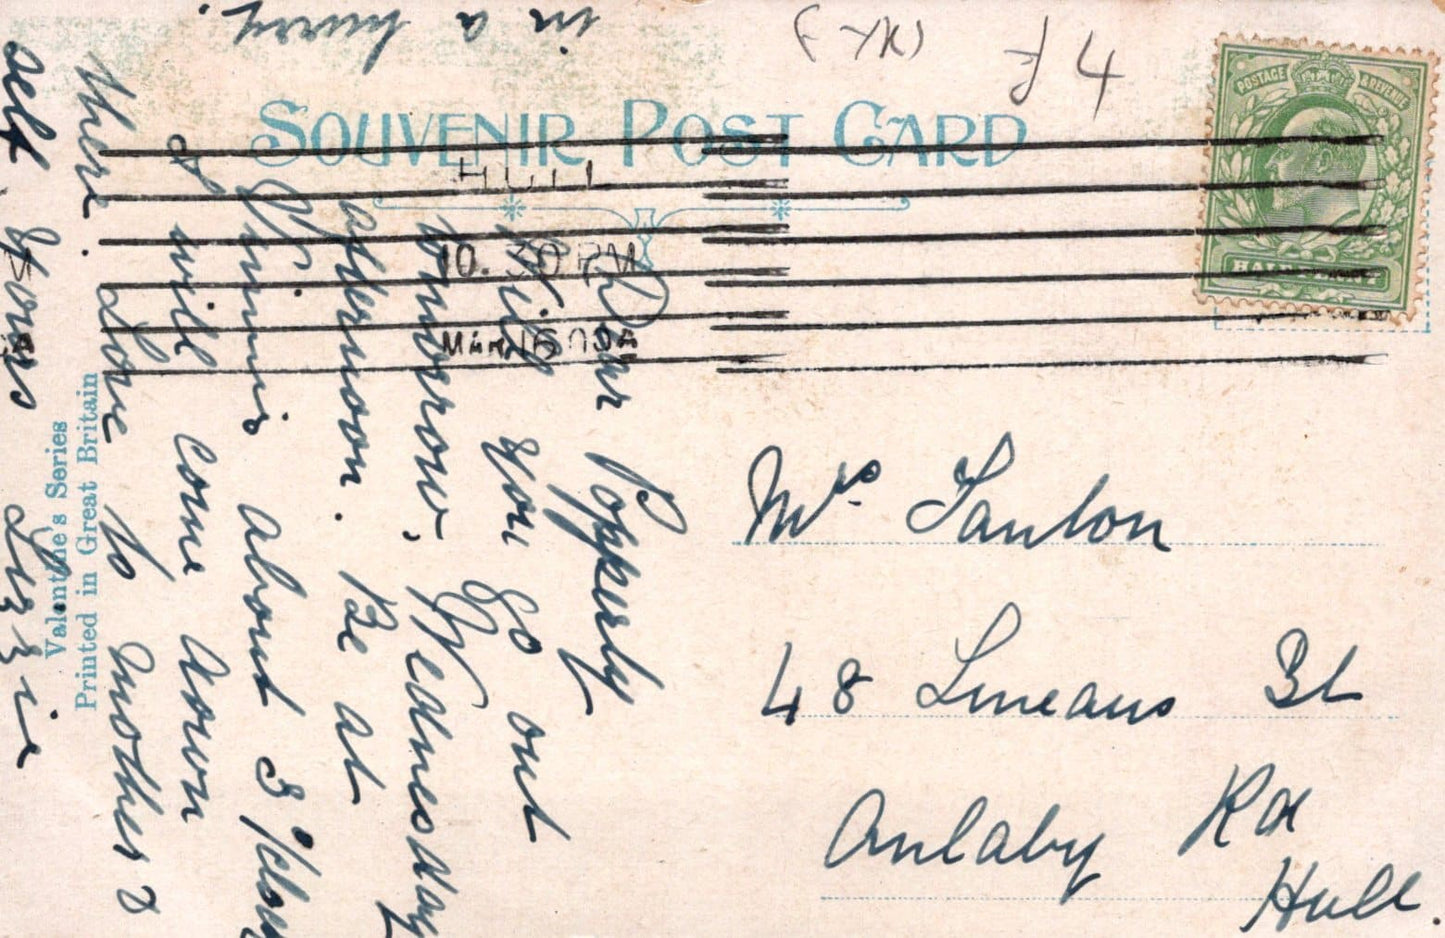 SOUVENIR POST CARD
POSTAGE & REVENUE
HALFPENNY
HULL
10.30 PM
MAR 16 09
Mrs Tanton
48 Lineaus St
Anlaby Rd
Hull.
Dear Popperly
Will you go out
tomorrow. Wednesday
afternoon. Be at
Minnie's about 3 o'clock
I will come down
there. Love to mother &
self. Yours Lizzie
in a hurry.
Valentine's Series
Printed in Great Britain